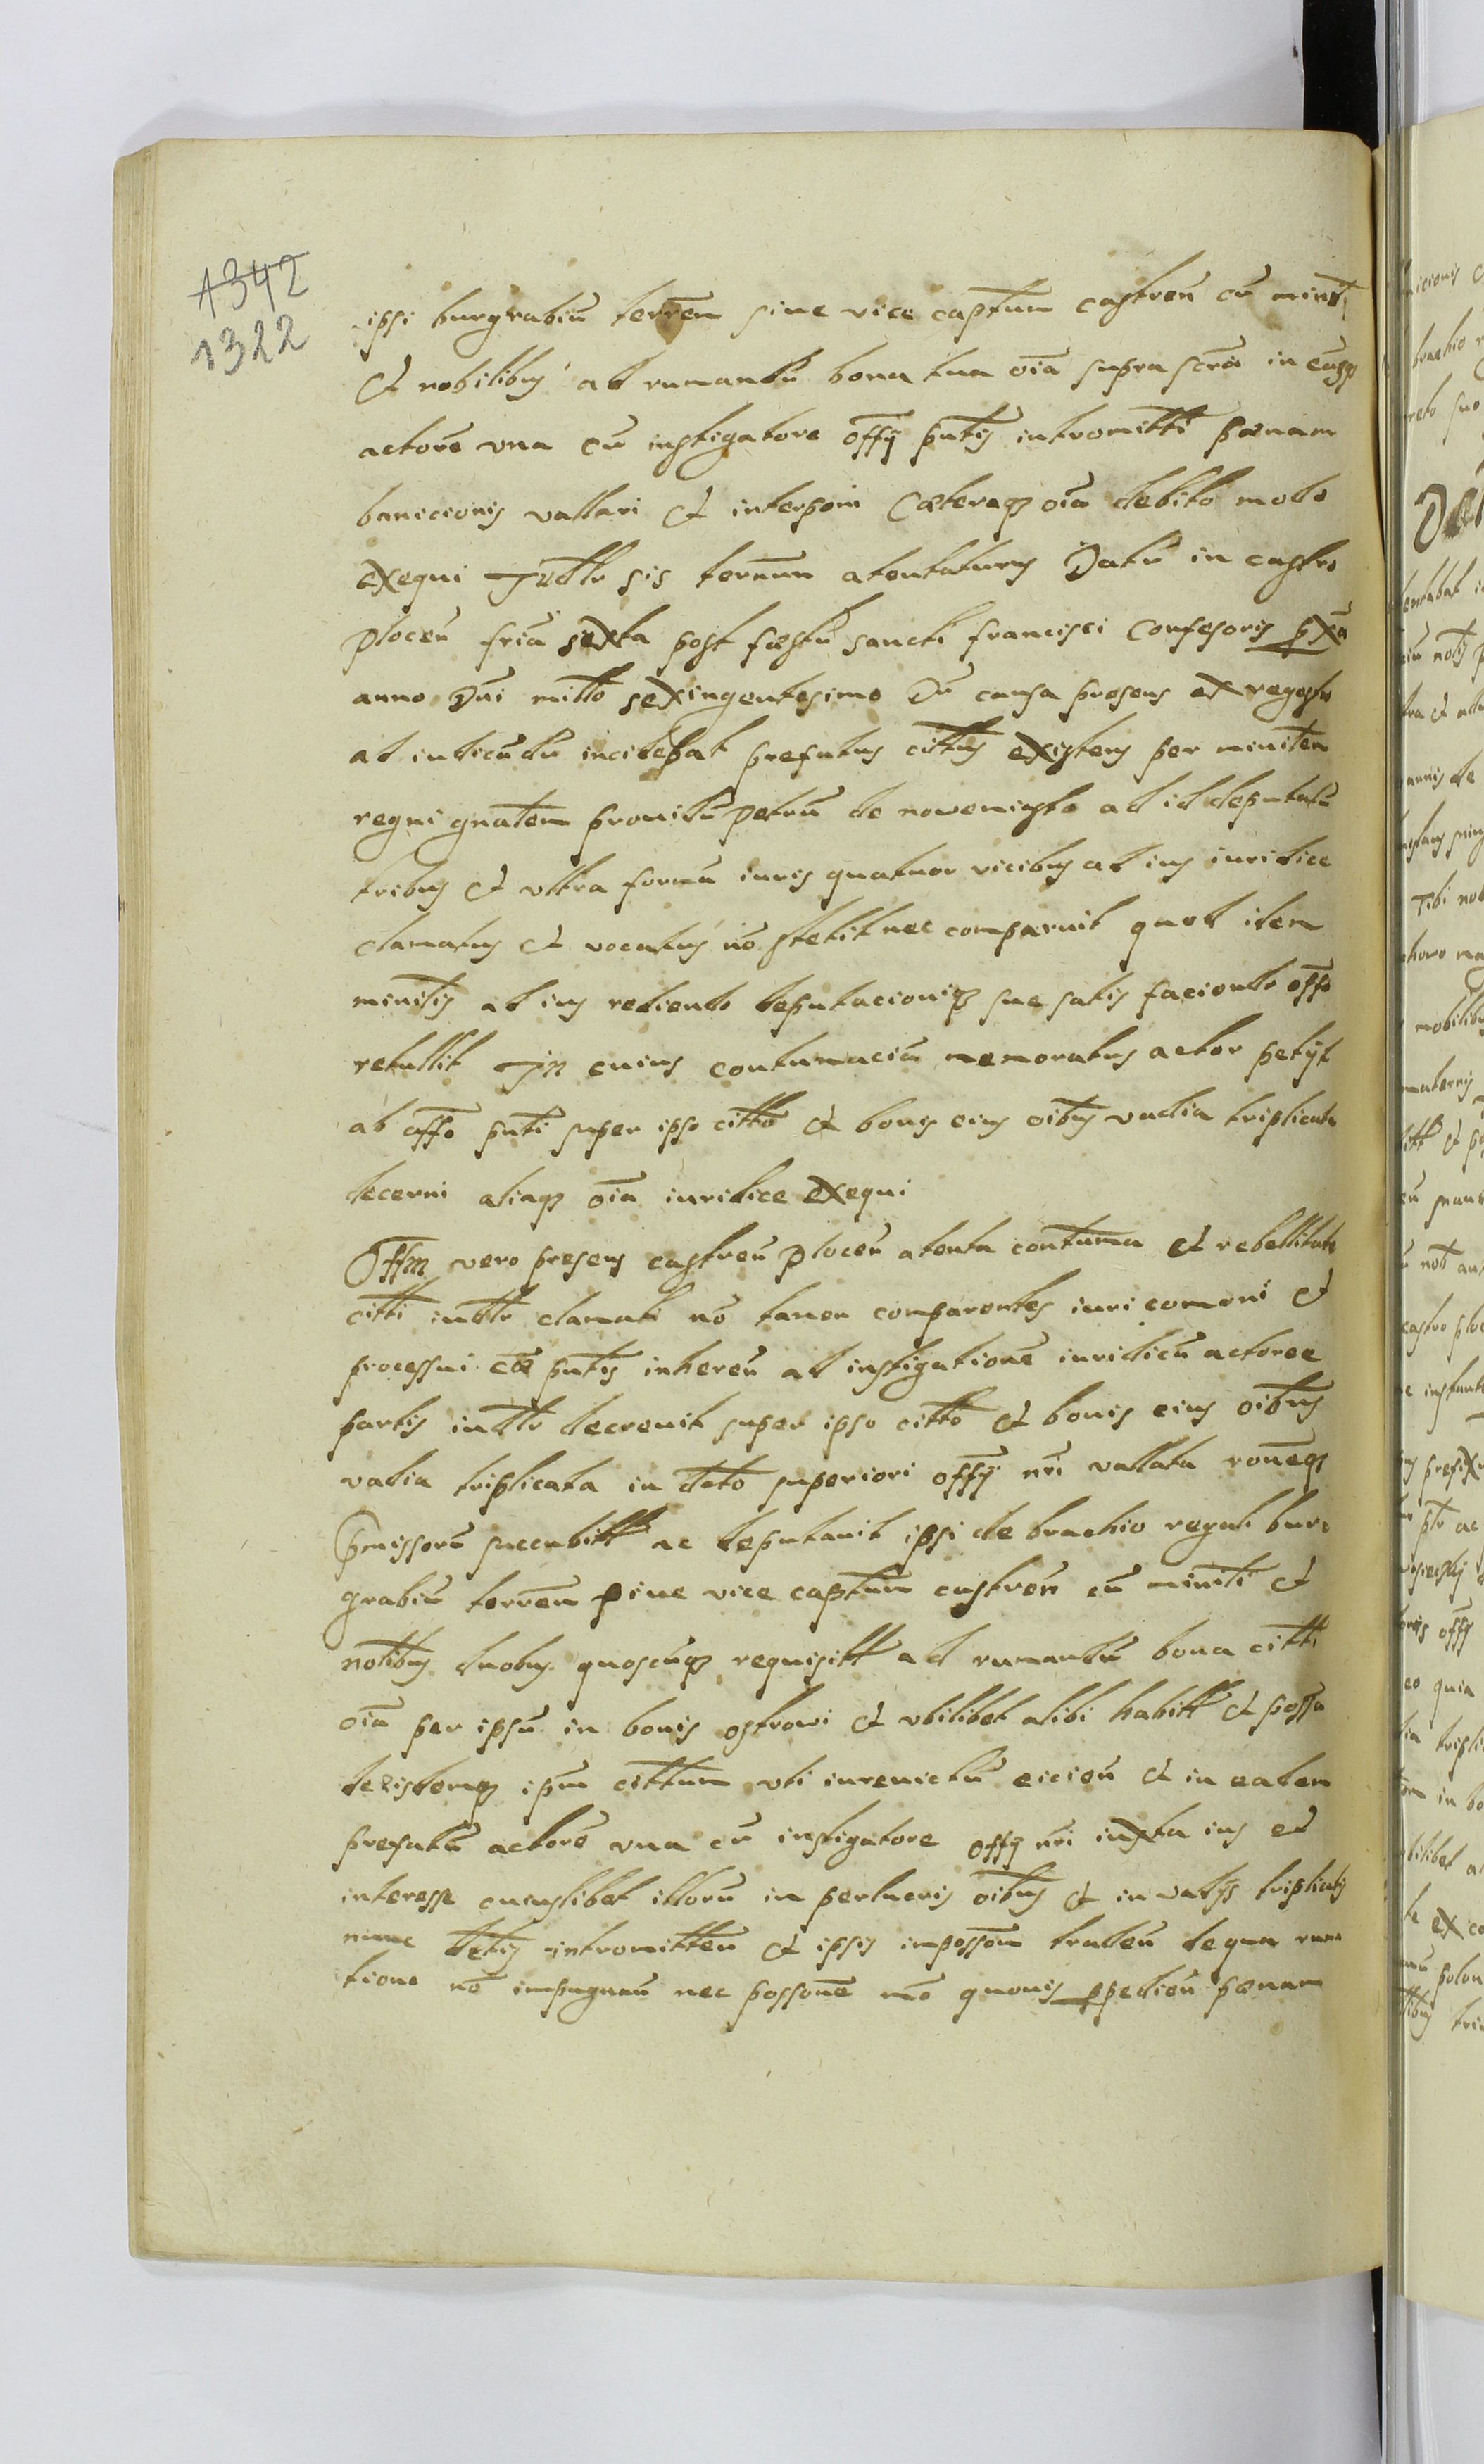 1342
1322
ipsi burgrabiū terrēn siue vice captūm castreñ cū minrī
et nobilibus ad rumandū bona tua oīa suprascrā in eaqȝ
actorē vna cū instigatore offy pntis intromitti pænam
banicionis vallari et interponi Cæteraqȝ oīa debito modo
exequi Judtr sis termīn atentaturus Datū in castro
plocen̄ friā sexta post fæstū sancti francisci Confesoris pxā
anno Dn̄i millo sexingentesimo Dū causa presens ex regestro
ad iudicādū incidebat prefatus cittūs existens per ministēm
regni gnatēm prouidū petrū de nowemiasto ad id deputatū
tribus et vltra formā iuris quatuor vicibus ad ius iuridice
clamatus et vocatus nō stetit nec comparuit quod idem
ministis ad ius rediendo deputacioniqȝ sue satis faciendo offo
retullit In cuius contumaciā memoratus actor petyt
ab offo pnti super ipso citto et bonis eius oibus vadia triplicata
decerni aliaqȝ oīa iuridice exequi
Offm vero presens castren̄ plocen̄ atenta contuma et rebellitate
citti iudtr clamati nō tamen comparentis iuri comoni et
processui cæ pntis inheren̄ ad instigationē iuridicā actoree
partis iudtr decreuit super ipso citto et bonis eius oibus
vadia triplicata in dcto superiori offy nri vallata rōneqȝ
pmissorū succubitt ac deputauit ipsi de brachio regali bur:
grabiū terrēn siue vice captūm castreñ cū miniti et
notibus duobus quoscūqȝ requisitt ad rumandū bona citti
oīa per ipsū in bonis ostrowi et vbilibet alibi habitt et possa
deistemqȝ ipm cittum vti iureuictū eicien̄ et in eadem
prefatū actorē vna cū instigatore offy nri iuxta ius et
interesse cuiuslibet illorū in perlucris oibus et in vadys triplicatis
nunc dctis intromitten̄ et ipsis imposson̄ traden̄ dequa ruma
tione nō impugnan̄ nec possonē mō quouis ppedien̄ pænam